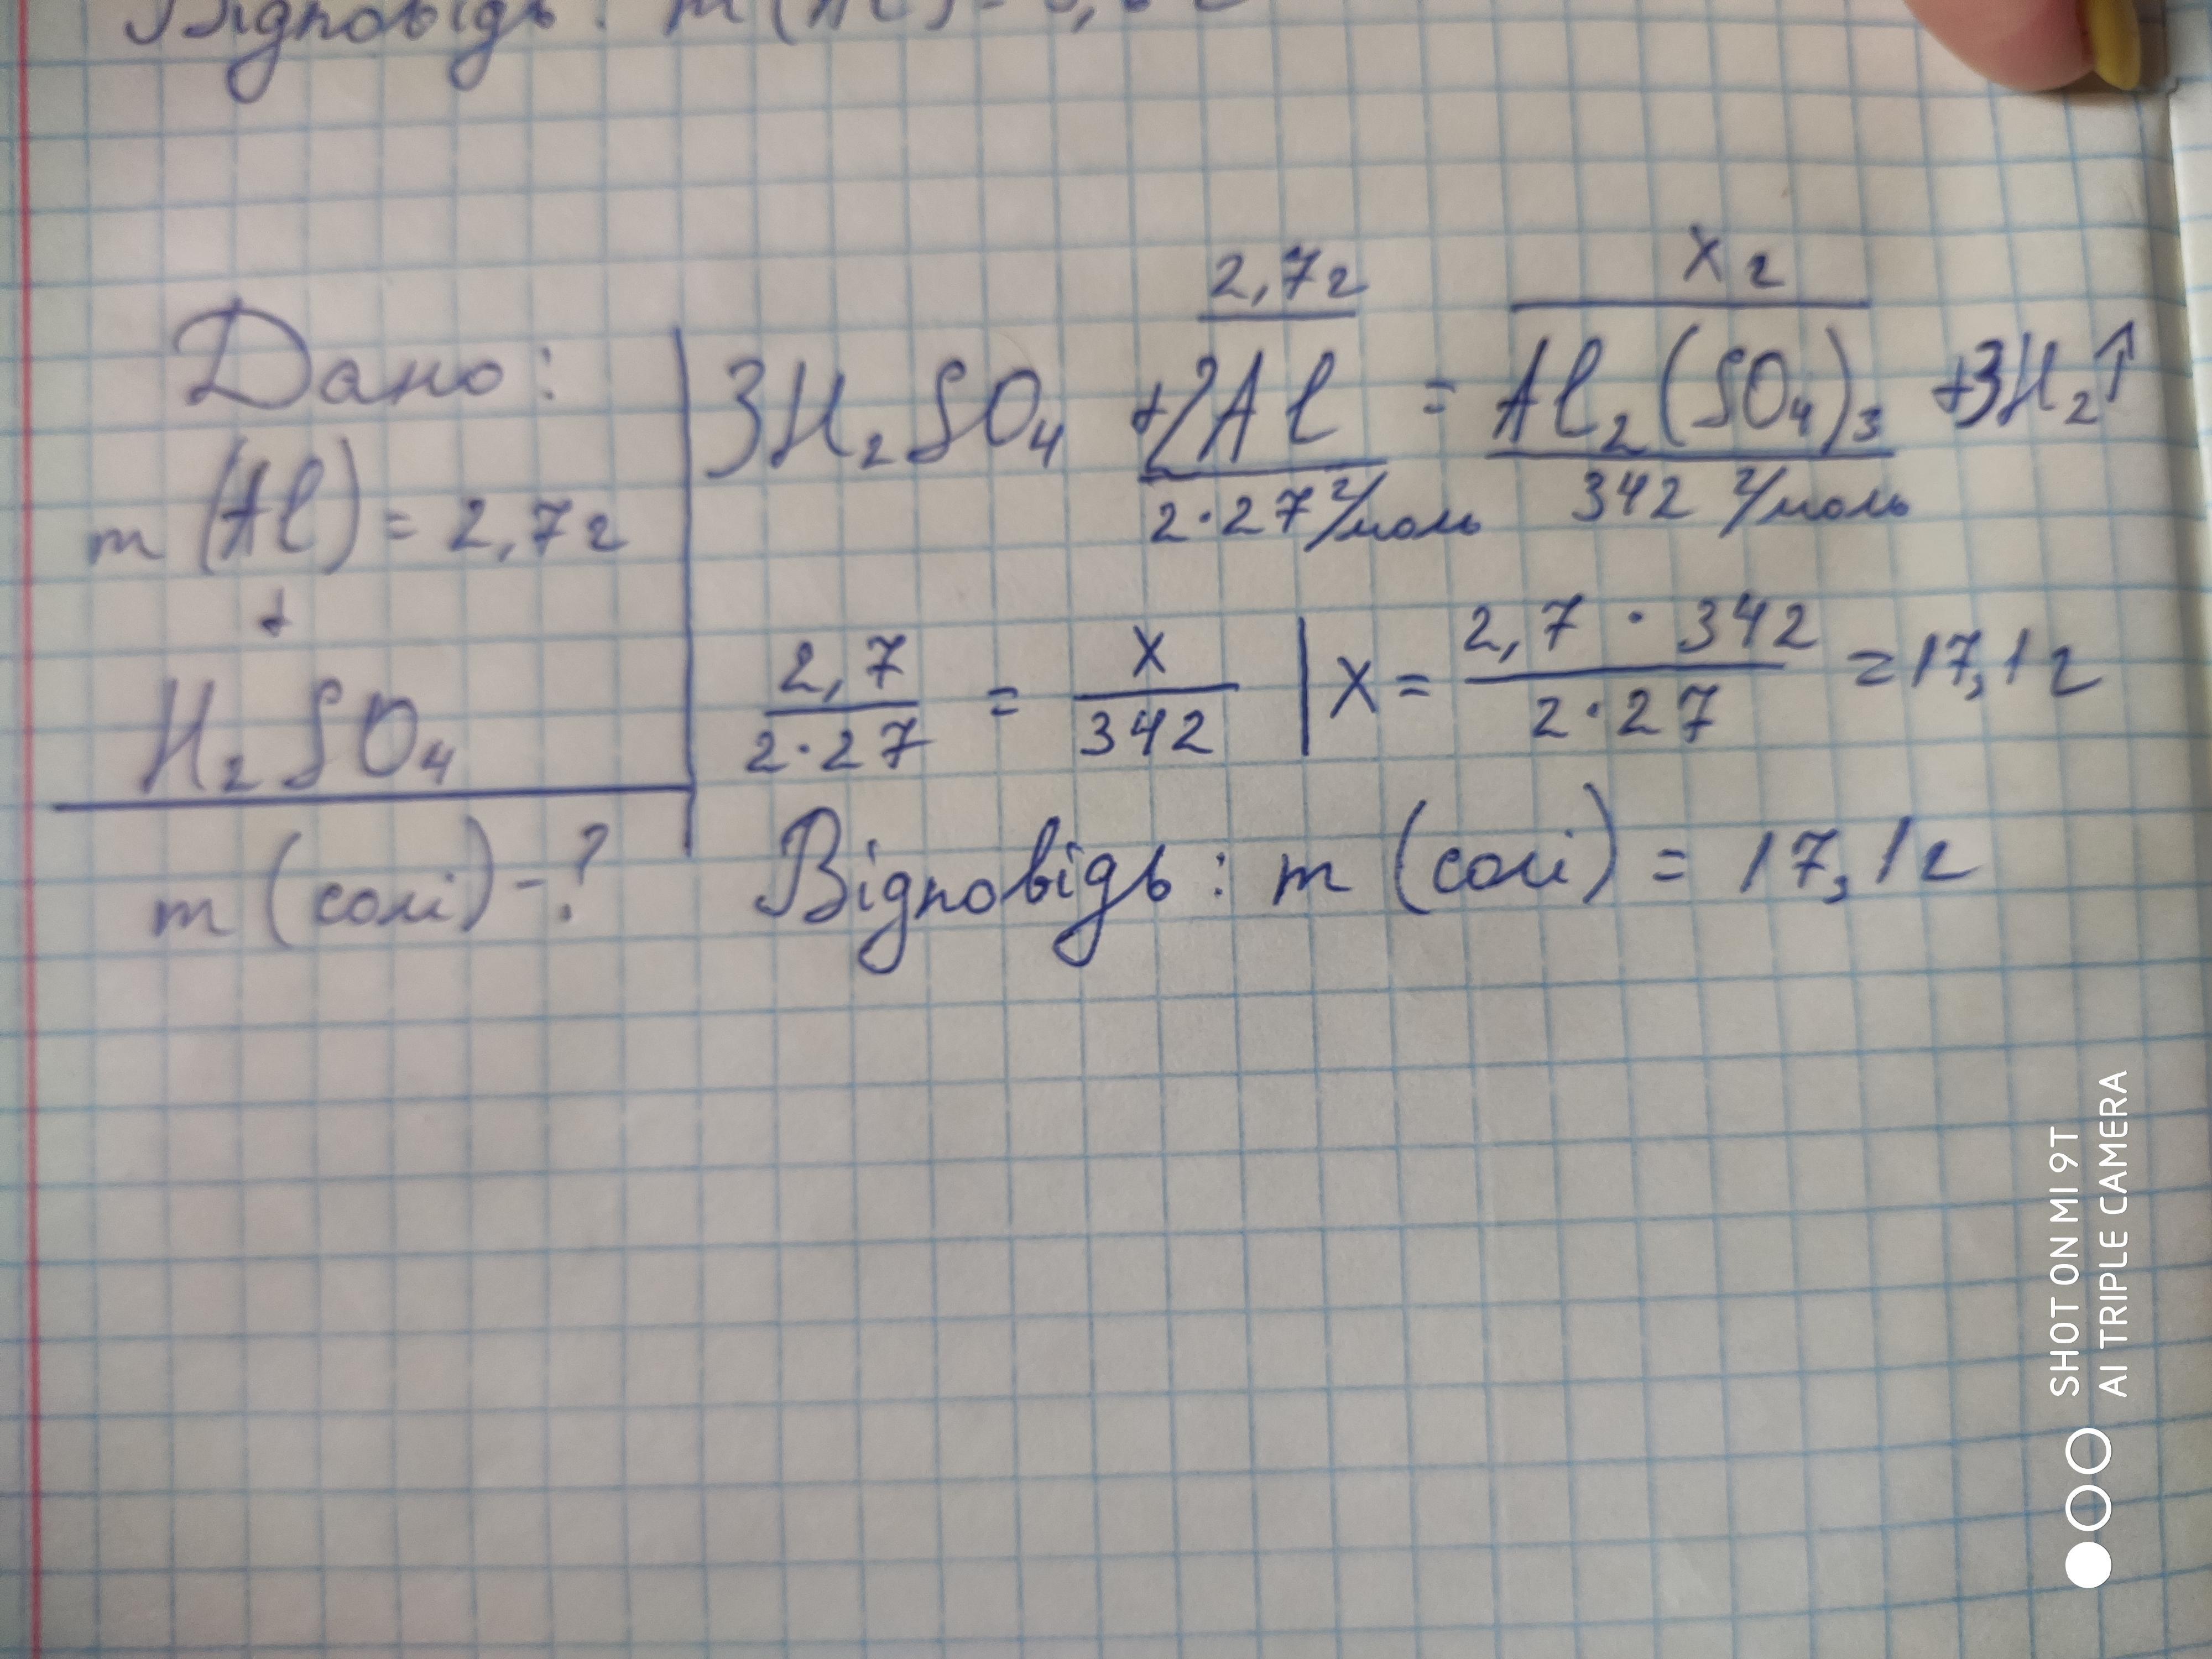 Відповідь: m (Al) =
Дано:
m (Al) = 2,7г
+
H₂SO₄
m (солі) -?
2,7г    x г
3H₂SO₄ + 2Al = Al₂(SO₄)₃ + 3H₂↑
2·27 г/моль    342 г/моль
2,7/2·27 = x/342 | x = 2,7 · 342/2·27 = 17,1 г
Відповідь: m (солі) = 17,1 г
SHOT ON MI 9T
AI TRIPLE CAMERA